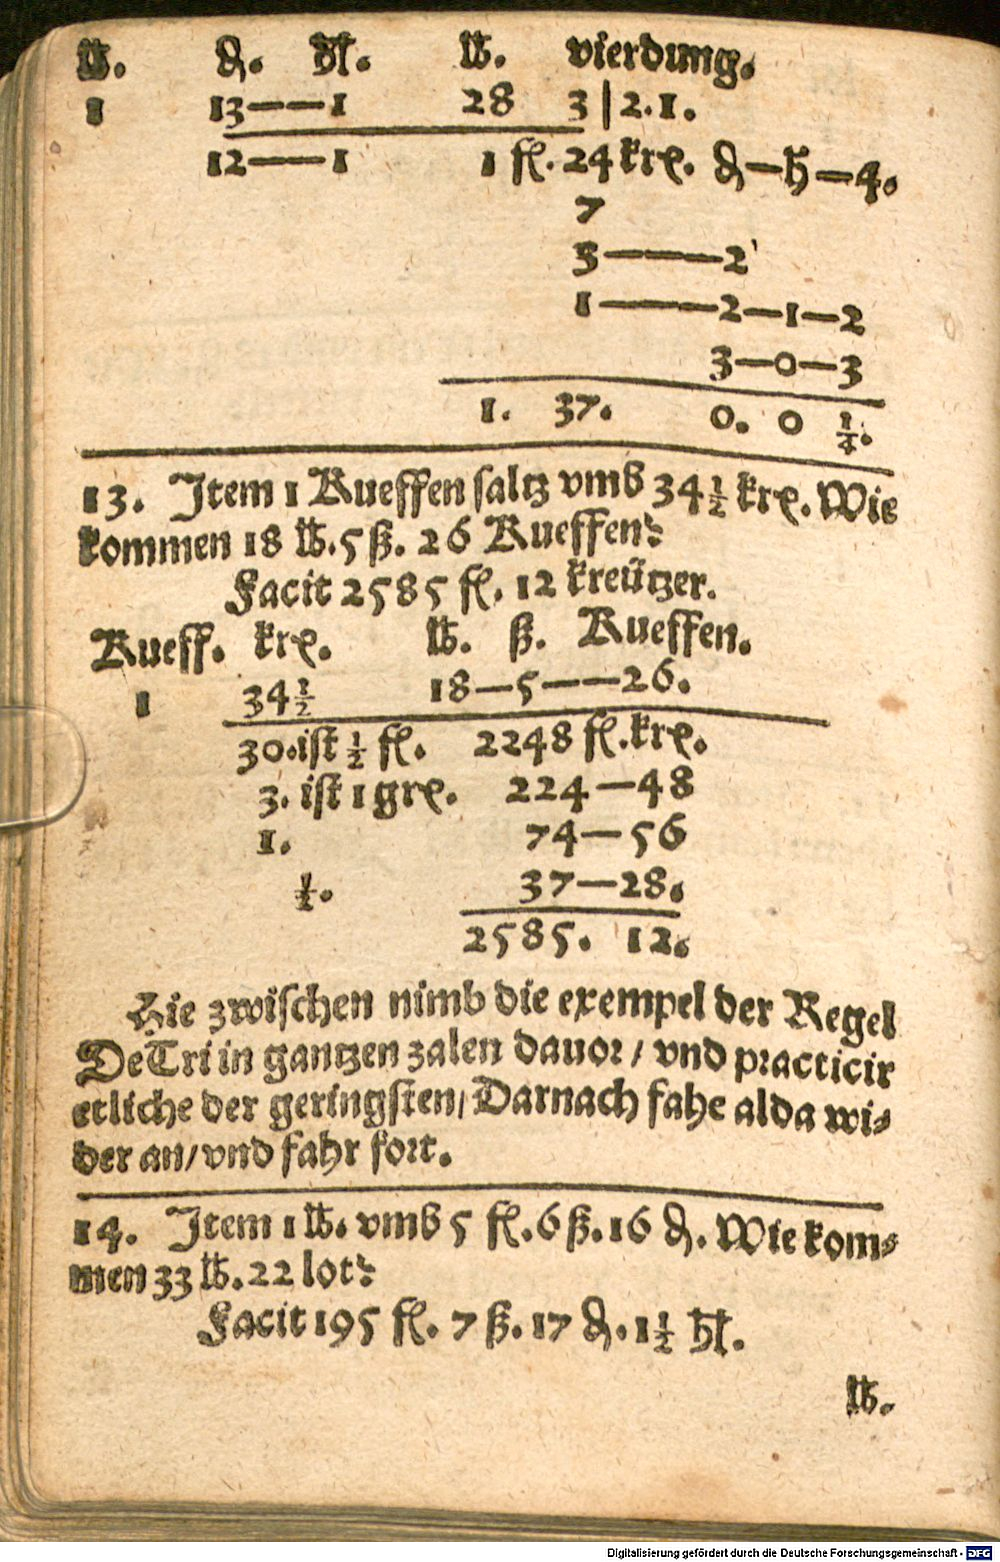 ℔. ₰. hl. ℔. vierdung.
1 13——1 28 3 | 2. 1.
12——1 1 fl. 24 krx. ₰—h—4.
7
3———2
1———2—1—2
3—0—3
1. 37. 0. 0 1/4.
13. Item 1 Kueffen saltz vmb 34 1/2 krx. Wie
kommen 18 ℔. 5 ß. 26 Kueffen?
Facit 2585 fl. 12 kreützer.
Kueff. krx. ℔. ß. Kueffen.
1 34 1/2 18—5——26.
30. ist 1/2 fl. 2248 fl. krx.
3. ist 1 grx. 224—48
1. 74—56
1/2. 37—28.
2585. 12.
Hie zwischen nimb die exempel der Regel
De Tri in gantzen zalen dauor / vnd practicir
etliche der geringsten / Darnach fahe alda wi⸗
der an / vnd fahr fort.
14. Item 1 ℔. vmb 5 fl. 6 ß. 16 ₰. Wie kom⸗
men 33 ℔. 22 lot?
Facit 195 fl. 7 ß. 17 ₰. 1 1/2 hl.
℔.
Digitalisierung gefördert durch die Deutsche Forschungsgemeinschaft - DFG